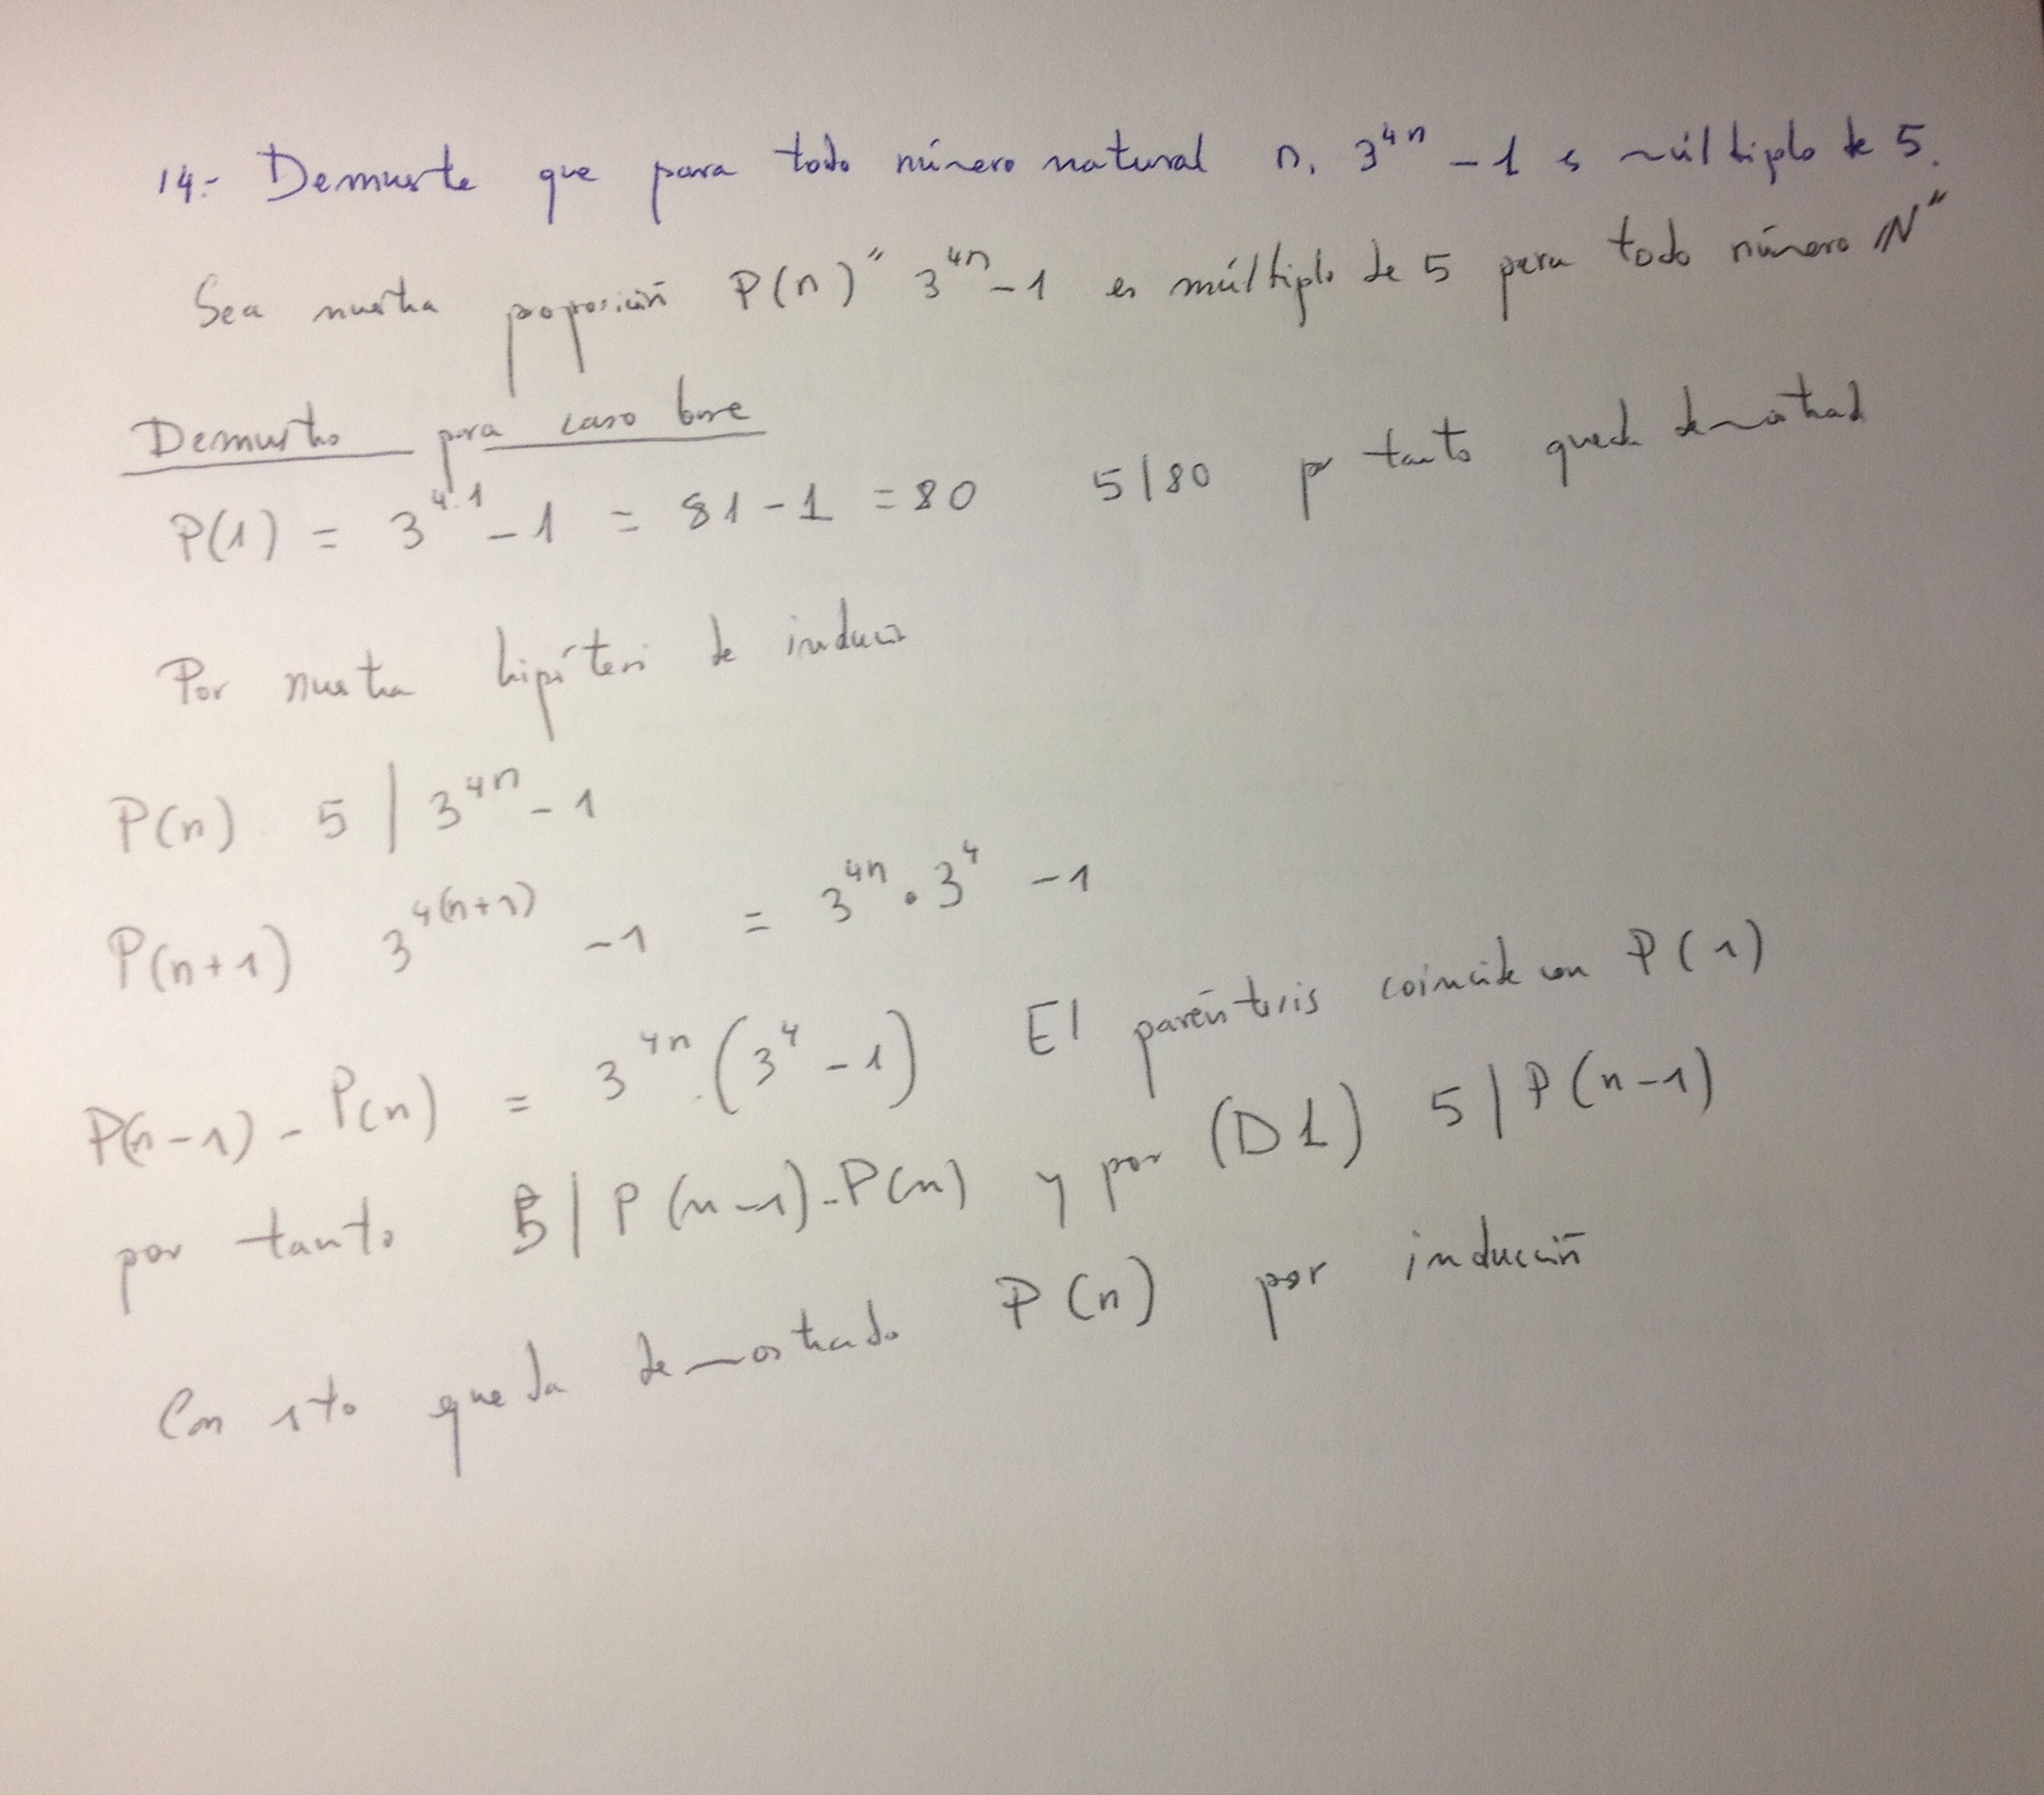 14.- Demuestre que para todo número natural n, 3^{4n} - 1 es múltiplo de 5.
Sea nuestra proposición P(n) " 3^{4n} - 1 es múltiplo de 5 para todo número ℕ"
Demuestro para caso base
P(1) = 3^{4·1} - 1 = 81 - 1 = 80 5|80 por tanto queda demostrad
Por nuestra hipótesis de inducción
P(n) 5 | 3^{4n} - 1
P(n+1) 3^{4(n+1)} - 1 = 3^{4n} · 3^4 - 1
P(n-1) - P(n) = 3^{4n} · (3^4 - 1) El paréntesis coincide con P(1)
por tanto 5 | P(n-1) - P(n) y por (D1) 5 | P(n-1)
Con esto queda demostrado P(n) por inducción